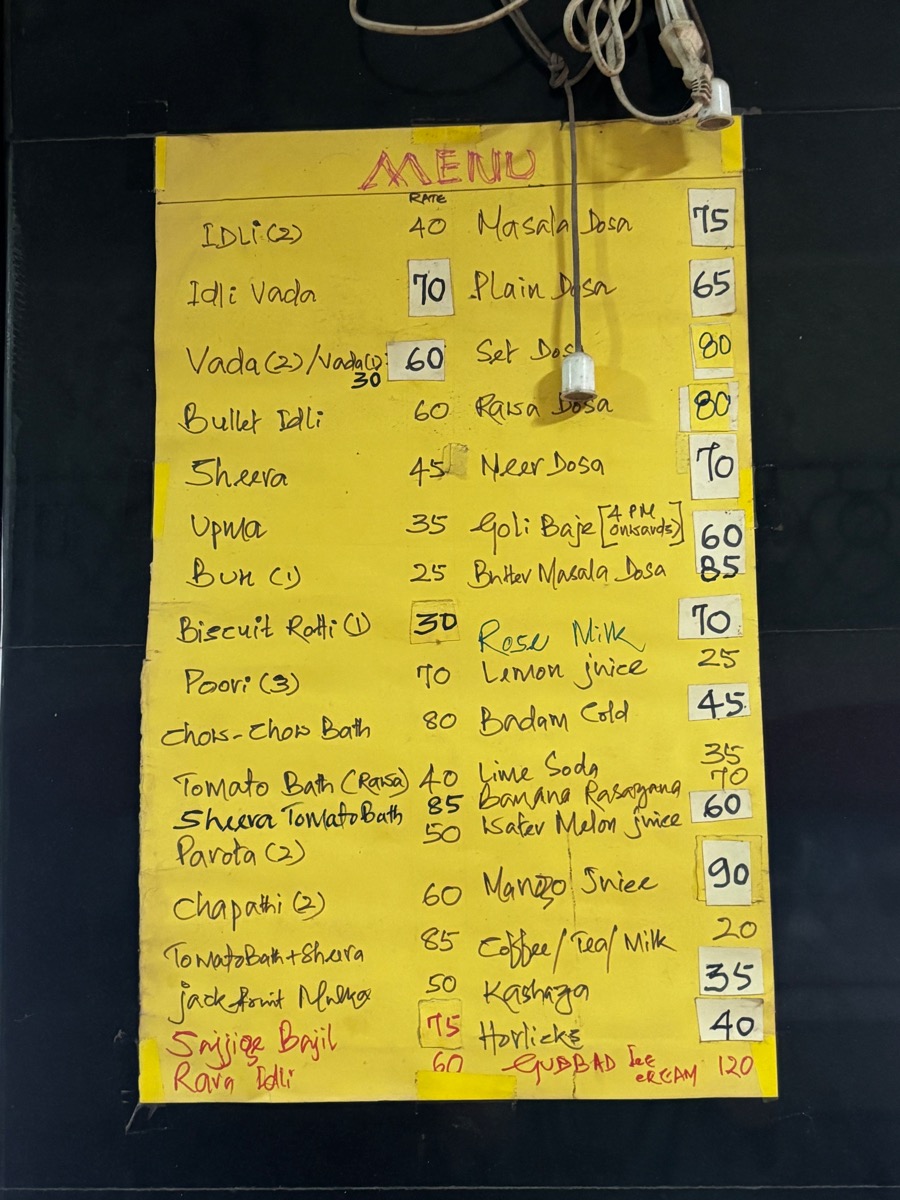 MENU
RATE
IDLi (2) 40
Idli Vada 70
Vada (2) / Vada (1) 30 60
Bullet Idli 60
Sheera 45
Upma 35
Bun (1) 25
Biscuit Rotti (1) 30
Poori (3) 70
Chow-Chow Bath 80
Tomato Bath (Rawa) 40
Sheera Tomato Bath 85
Parota (2) 50
Chapathi (2) 60
Tomato Bath + Sheera 85
jack fruit Mulka 50
Sajjige Bajil 75
Rava Idli 60
Masala Dosa 75
Plain Dosa 65
Set Dosa 80
Rawa Dosa 80
Neer Dosa 70
Goli Baje [4 PM onwards] 60
Butter Masala Dosa 85
Rose Milk 70
Lemon juice 25
Badam Cold 45
Lime Soda 35
Banana Rasayana 70
Water Melon juice 60
Mango Juice 90
Coffee / Tea / Milk 20
Kashaya 35
Horlicks 40
GUBBAD Ice CREAM 120